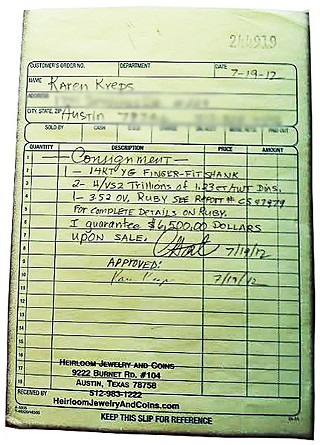 244919
CUSTOMER'S ORDER NO. DEPARTMENT DATE 7-19-12
NAME Karen Kreps
ADDRESS
CITY, STATE, ZIP Austin
SOLD BY CASH PAID OUT
QUANTITY DESCRIPTION PRICE AMOUNT
1 Consignment
2 1- 14KT YG FINGER-FIT SHANK
3 2- H/VS2 TRILLIONS OF 1.23CT/TWT DIAS.
4 1- 3.52 OV. RUBY SEE REPORT # CS47979
5 FOR COMPLETE DETAILS ON RUBY.
6 I guarantee $6,500.00 DOLLARS
7 UPON SALE. 7/19/12
APPROVED:
7/19/12
HEIRLOOM JEWELRY AND COINS
9222 BURNET RD. #104
AUSTIN, TEXAS 78758
512-983-1222
RECEIVED BY HeirloomJewelryAndCoins.com
KEEP THIS SLIP FOR REFERENCE